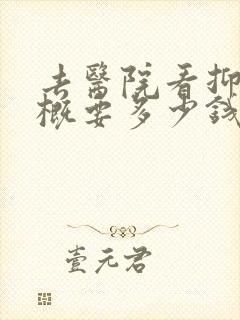 去醫院看抑
概要多少錢
壹元君